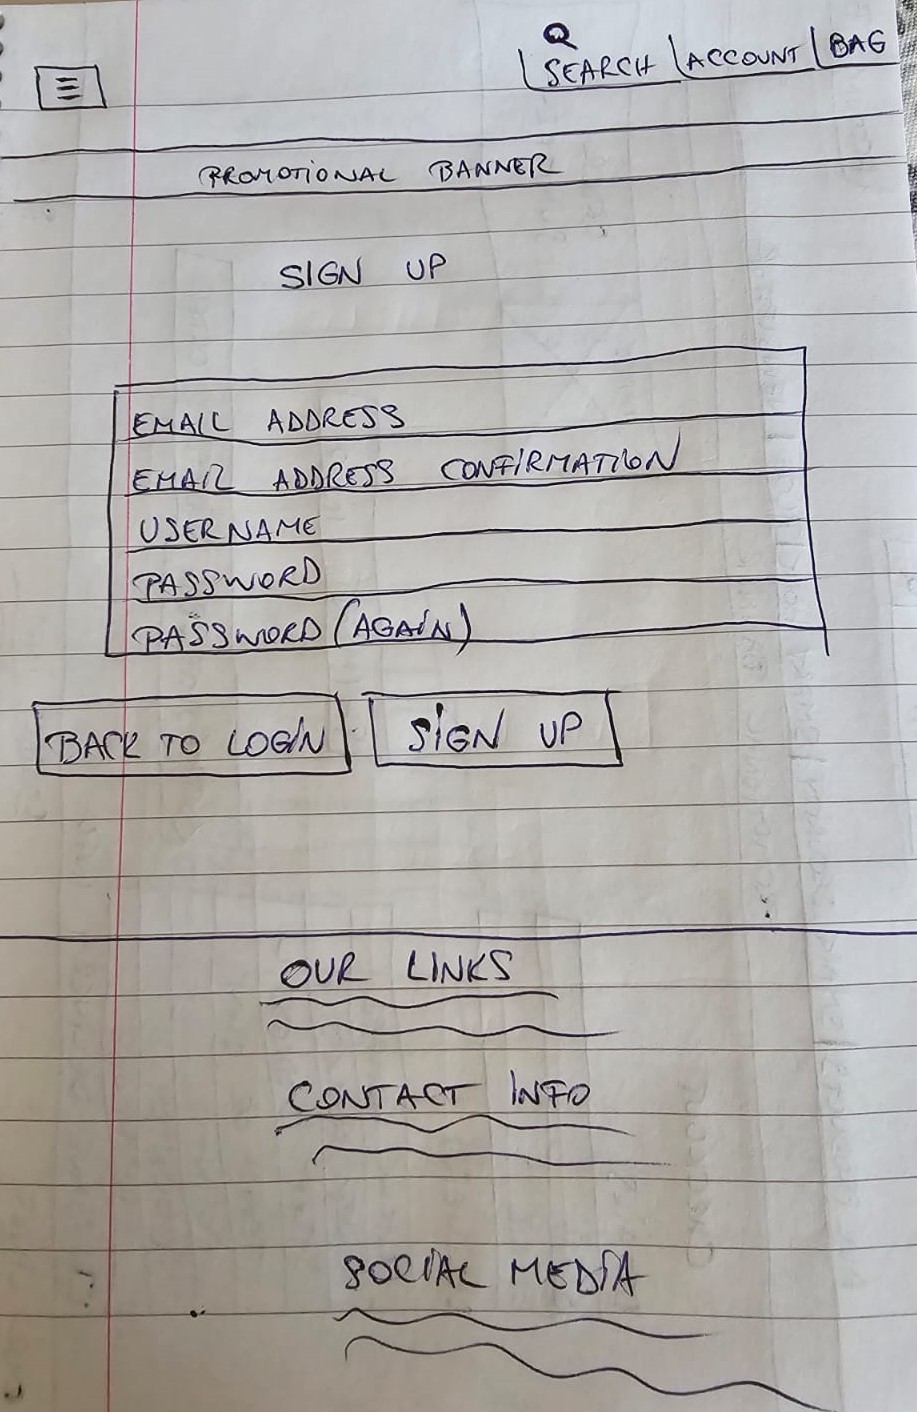 SEARCH ACCOUNT BAG
PROMOTIONAL BANNER
SIGN UP
EMAIL ADDRESS
EMAIL ADDRESS CONFIRMATION
USERNAME
PASSWORD
PASSWORD (AGAIN)
BACK TO LOGIN SIGN UP
OUR LINKS
CONTACT INFO
SOCIAL MEDIA